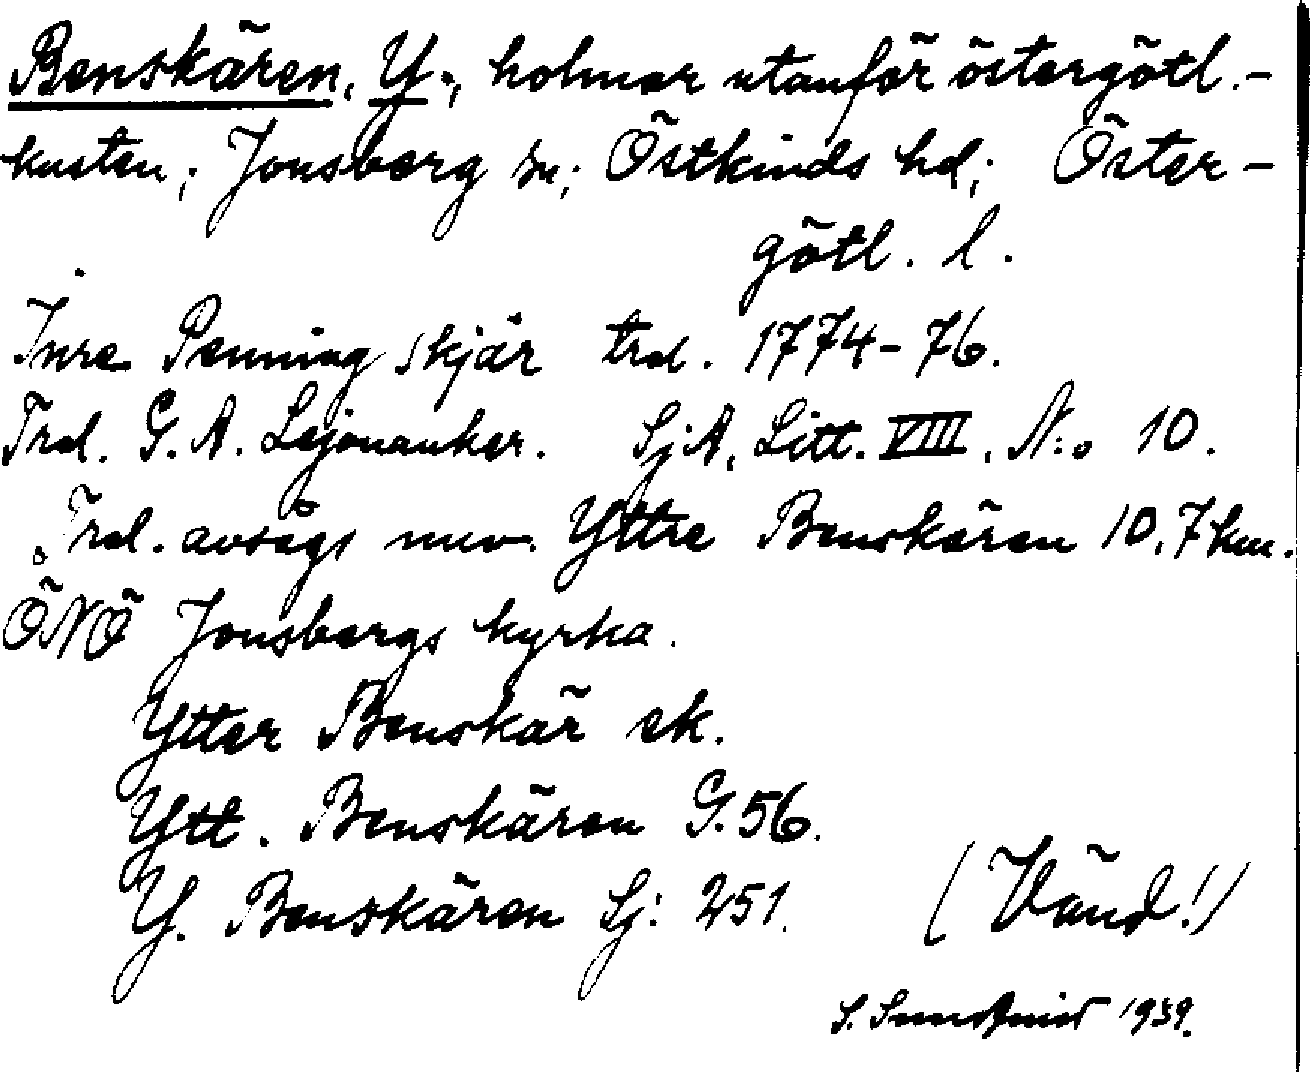 Benskären, Y., holmar utanför östergötl.-
kusten; Jonsberg sn; Östkinds hd; Öster-
götl. l.
Inre Penning skjär trol. 1774-76.
Trol. G. A. Lejonanker. SjA, Litt. VIII, N:o 10.
Trol. avsågs nuv. Yttre Benskären 10,7 km.
ÖNÖ Jonsbergs kyrka.
Ytter Benskär ek.
Ytt. Benskären G. 56.
Y. Benskären Sj: 251.
(Vänd!)
S. 1939.